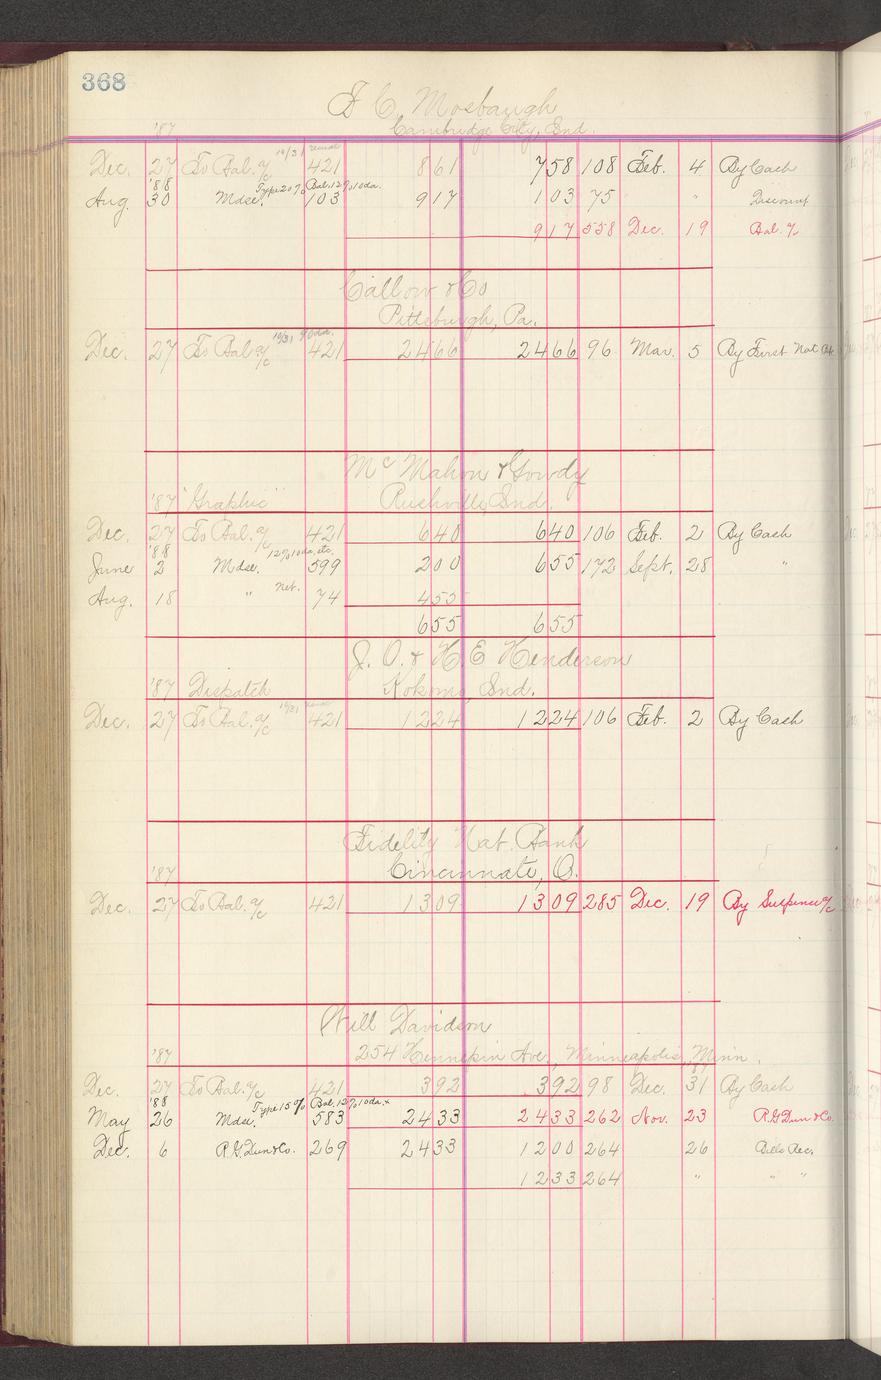 368
F C. Mosbaugh
'87 Cambridge City, Ind.
Dec. 27 To Bal. a/c 10/31 421 8 61 7 58 108 Feb. 4 By Cash
'88 Type 20% Bal. 12% 10 da.
Aug. 30 Mdse. 103 9 17 1 03 75 " Discount
9 17 558 Dec. 19 Bal. a/c
Callow & Co
Pittsburgh, Pa.
Dec. 27 To Bal. a/c 10/31 90 da. 421 24 66 24 66 96 Mar. 5 By First Nat Bk.
Mc Mahon & Gowdy
'87 "Graphic" Rushville, Ind.
Dec. 27 To Bal. a/c 421 6 40 6 40 106 Feb. 2 By Cash
'88 12% 10 da, etc.
June 2 Mdse. 599 2 00 6 55 172 Sept. 28 "
Aug. 18 " net. 74 4 55
6 55 6 55
J. O. & H. E Henderson
'87 Dispatch Kokomo, Ind.
Dec. 27 To Bal. a/c 10/31 421 12 24 12 24 106 Feb. 2 By Cash
Fidelity Nat. Bank
'87 Cincinnate, O.
Dec. 27 To Bal. a/c 421 13 09 13 09 285 Dec. 19 By Suspence a/c
Will Davidson
'87 254 Hennepin Ave., Minneapolis, Minn.
Dec. 27 To Bal. a/c 421 3 92 3 92 98 Dec. 31 By Cash
'88 Type 15% Bal. 12% 10 da. x
May 26 Mdse. 583 24 33 24 33 262 Nov. 23 R. G. Dun & Co.
Dec. 6 R. G. Dun & Co. 269 24 33 12 00 264 26 Bills Rec.
12 33 264 " " "